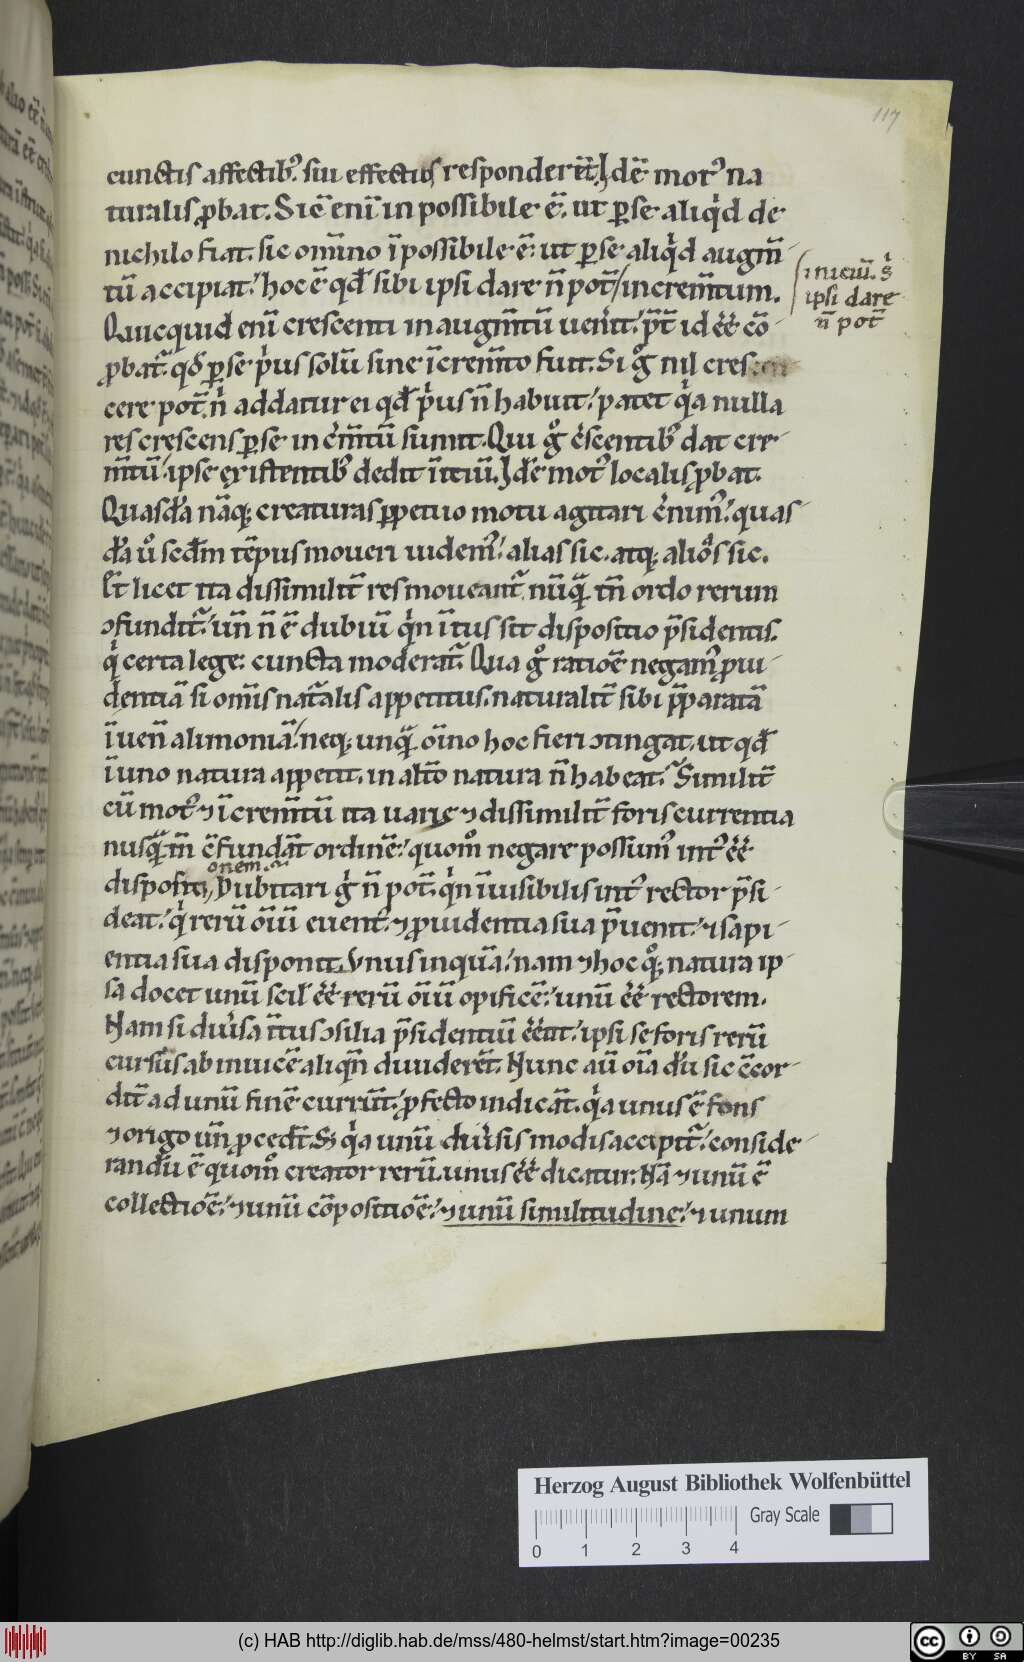 117
cunctis affectibꝰ. siu effectiuſ respondeꝛēt. Idē motꝰ na
turalis ꝓbat. Sic̄ enī in possibile ē. ut ꝑ se aliqͥd de
nichilo fiat. sic om̄ino ī possibile ē. ut ꝑ se aliqͥd augm̄
tū accipiat. hoc ē qđ sibi ipsi dare n̄ pot̄ / increm̄tum.
iniciū. s̓
ipsi dare
n̄ pot̄
Quicquid enī crescenti in augm̄tū uen̓it. p̄t̄ id eē̄ cō
ꝓbat̄. qđ ꝑ se pͥus solū sine īcrem̄to fuit. Si g̊ nil cres
cere pot̄. nͥ addatur ei qđ pͥus n̄ habuit. patet qͥa nulla
res crescens ꝑ se in c̓m̄tū sumit. Qui g̊ c̓scentibꝰ dat cre
m̄tū. ipse ęxistentibꝰ dedit īitiū. Idē motꝰ localis ꝓbat.
Quasdā nāqꝫ creaturas ꝑpetuo motu agitari c̓nimꝰ. quas
dā u̓ scd̄m tēpus moueri uidemꝰ. alias sic. atqꝫ alios sic.
Et licet ita dissimilit̄ res moueantͬ. nūqͣ tn̄ ordo rerum
ɔfundit̄. un̄ n̄ ē dubiū qͥn ītus sit dispositio p̄sidentis.
qͥ certa lege. cuncta moderat̄. Qua g̊ ratiōe negamꝰ ꝓui
dentiā si om̄is natͬalis appetitus. naturalit̄ sibi p̄paratā
īuen̄ alimoniā. neqꝫ unqͣ oīno hoc fieri ɔtingat. ut qđ
ī uno natura appetit. in alt̄o natura n̄ habeat. Similit̄
cū motꝰ ⁊ īcrem̄tū ita uarię ⁊ dissimilit̄ foris currentia
nusqͣ tn̄ c̄fundāt ordinē. quom̊ negare possumꝰ intꝰ eē̄
onem.
disposit Dubitari g̊ n̄ pot̄. qͥn īuisibilis intꝰ rector p̄si
deat. qͥ rerū oīū euentꝰ. ⁊ ꝓuidentia sua p̄uenit. ⁊ sapi
entia sua disponit. Vnus inquā. nam ⁊ hoc qͦꝫ natura ip
sa docet unū scil̓ eē̄ rerū oīū opificē. unū eē̄ rectorem.
Nam si diu̓sa ītus ɔsilia p̄sidentiū eē̄nt. ipsi se foris rerū
cursus ab inuicē aliqn̄ diuiderēt. Nunc aū oīa dū sic c̄cor
dit̄ ad unū finē currūt. ꝓfecto indicāt. qͥa unus ē fons
⁊ origo un̄ ꝓcedt̄. Sꝫ qͥa unū diu̓sis modis accipit̄. conside
randū ē quom̊ creator rerū. unus eē̄ dicatur. Nā ⁊ unū ē
collectiōe. ⁊ unū cōpositiōe. ⁊ unū similitudine. ⁊ unum
Herzog August Bibliothek Wolfenbüttel
0 1 2 3 4 Gray Scale
(c) HAB http://diglib.hab.de/mss/480-helmst/start.htm?image=00235
cc BY SA